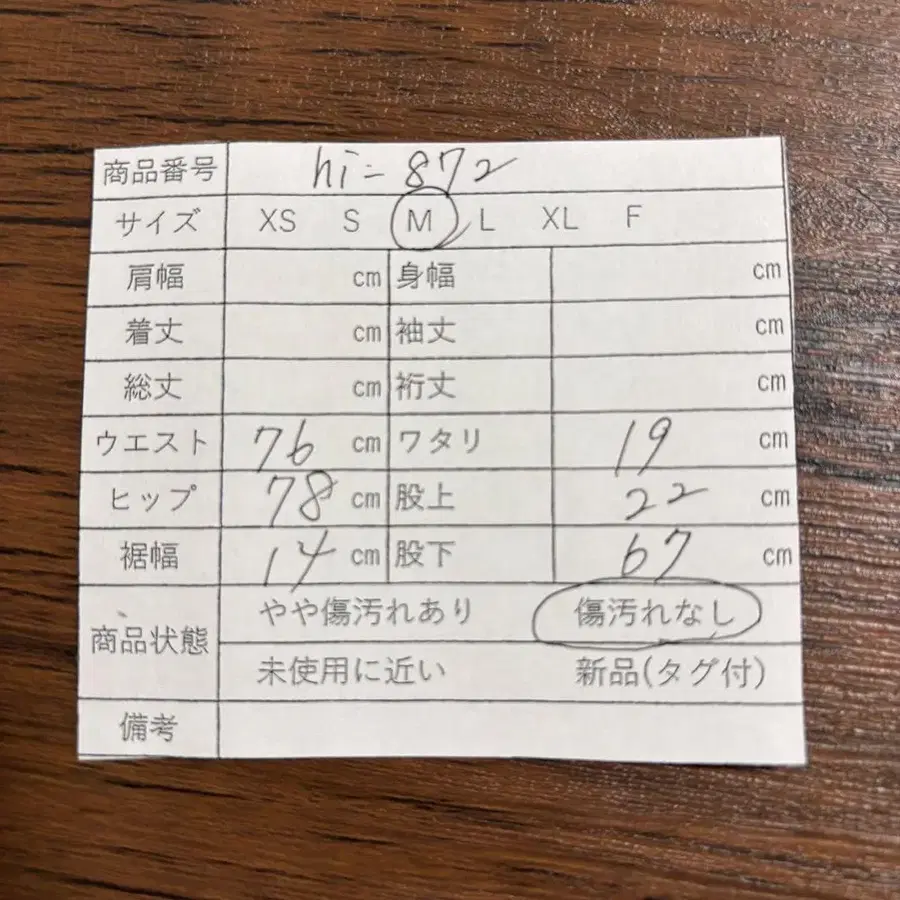 商品番号 hi-872
サイズ XS S M L XL F
肩幅 cm 身幅 cm
着丈 cm 袖丈 cm
総丈 cm 裄丈 cm
ウエスト 76 cm ワタリ 19 cm
ヒップ 78 cm 股上 22 cm
裾幅 14 cm 股下 67 cm
商品状態 やや傷汚れあり 傷汚れなし
未使用に近い 新品(タグ付)
備考